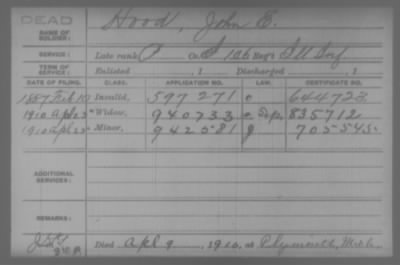 DEAD
NAME OF SOLDIER: Hood, John E.
SERVICE: Late rank P Co. I 106 Reg't Ill Inf
TERM OF SERVICE: Enlisted , 1 Discharged , 1
DATE OF FILING. CLASS. APPLICATION NO. LAW. CERTIFICATE NO.
1887 Feb 10 Invalid, 597 271 644723
1910 Apl 25 Widow, 940733 835712
1910 Apl 25 Minor, 942581 705545
ADDITIONAL SERVICES:
REMARKS:
Died Apl 9, 1910, at Plymouth, Mich.